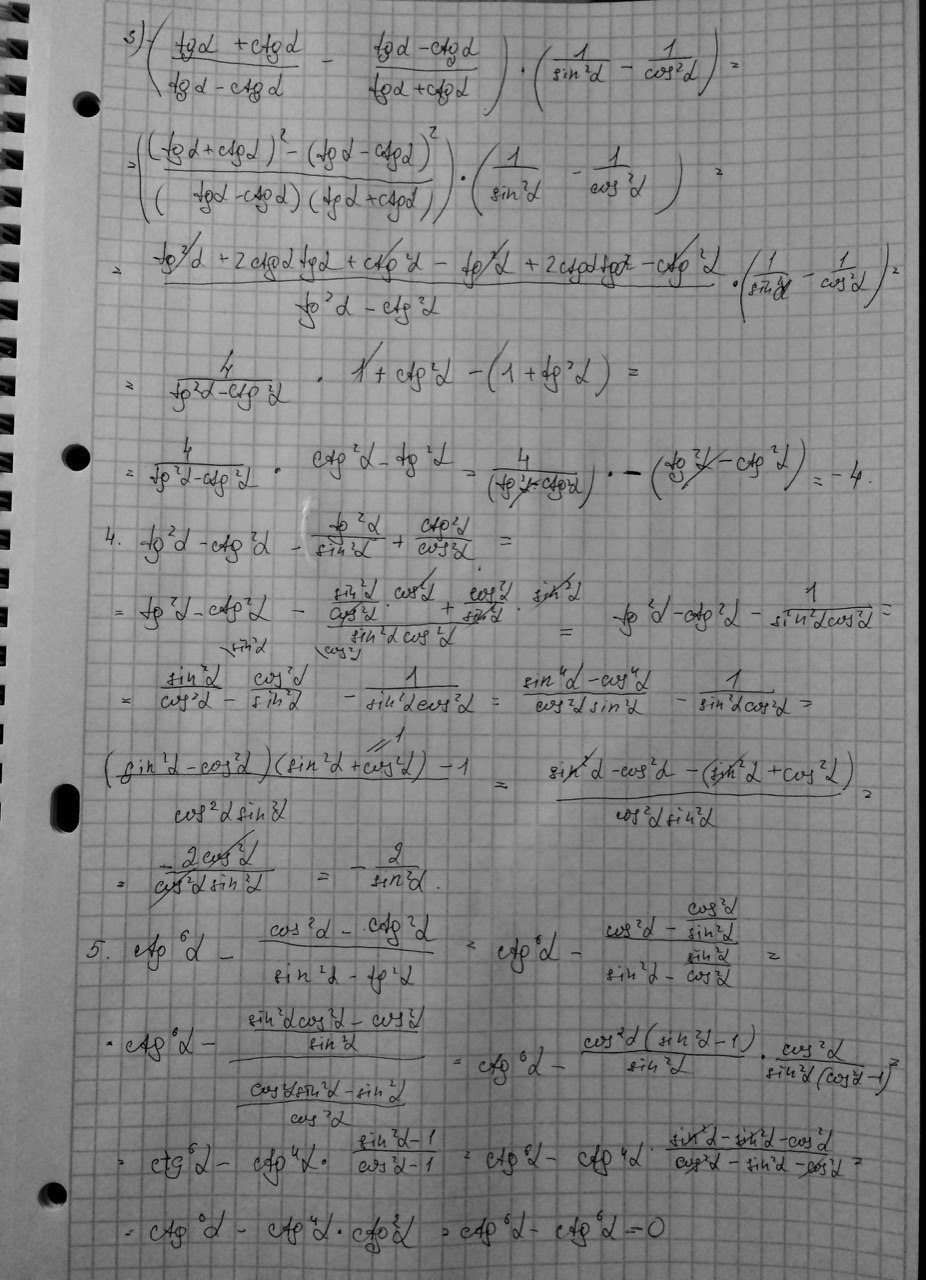 3) ((tgα + ctgα)/(tgα - ctgα) - (tgα - ctgα)/(tgα + ctgα)) · (1/sin²α - 1/cos²α) =
= (((tgα + ctgα)² - (tgα - ctgα)²)/((tgα - ctgα)(tgα + ctgα))) · (1/sin²α - 1/cos²α) =
= (tg²α + 2ctgα tgα + ctg²α - tg²α + 2ctgα tgα - ctg²α)/(tg²α - ctg²α) · (1/sin²α - 1/cos²α) =
= 4/(tg²α - ctg²α) · 1 + ctg²α - (1 + tg²α) =
= 4/(tg²α - ctg²α) · ctg²α - tg²α = 4/(tg²α - ctg²α) · -(tg²α - ctg²α) = -4.
4. tg²α - ctg²α - tg²α/sin²α + ctg²α/cos²α =
= tg²α - ctg²α - (sin²α/cos²α · cos²α + cos²α/sin²α · sin²α)/(sin²α cos²α) = tg²α - ctg²α - 1/(sin²α cos²α) =
= sin²α/cos²α - cos²α/sin²α - 1/(sin²α cos²α) = (sin⁴α - cos⁴α)/(cos²α sin²α) - 1/(sin²α cos²α) =
((sin²α - cos²α)(sin²α + cos²α) - 1)/(cos²α sin²α) = (sin²α - cos²α - (sin²α + cos²α))/(cos²α sin²α) =
= -2cos²α/(cos²α sin²α) = - 2/sin²α.
5. ctg⁶α - (cos²α - ctg²α)/(sin²α - tg²α) = ctg⁶α - (cos²α - cos²α/sin²α)/(sin²α - sin²α/cos²α) =
· ctg⁶α - ((sin²α cos²α - cos²α)/sin²α)/((cos²α sin²α - sin²α)/cos²α) = ctg⁶α - cos²α(sin²α - 1)/sin²α · cos²α/(sin²α(cos²α - 1)) =
= ctg⁶α - ctg⁴α · (sin²α - 1)/(cos²α - 1) = ctg⁶α - ctg⁴α · (sin²α - sin²α - cos²α)/(cos²α - sin²α - cos²α) =
= ctg⁶α - ctg⁴α · ctg²α = ctg⁶α - ctg⁶α = 0